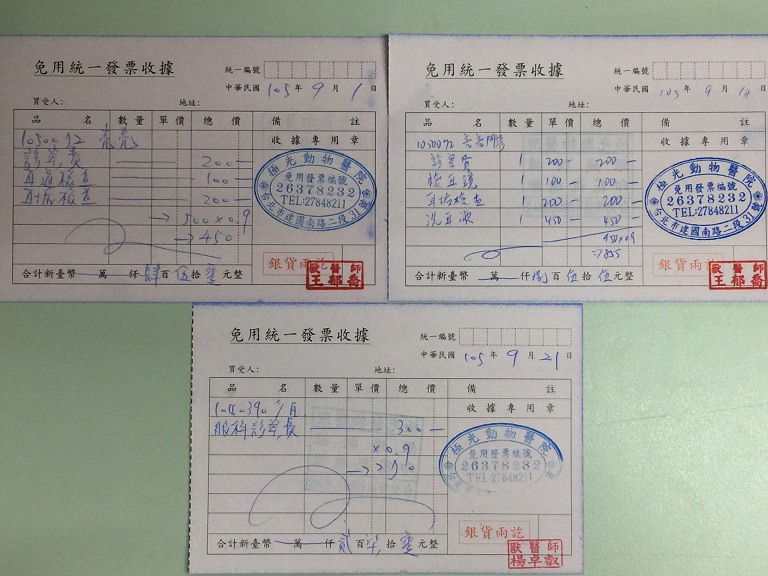 免用統一發票收據
統一編號
中華民國 105 年 9 月 1 日
買受人: 地址:
品 名 數量 單價 總價 備 註
收據專用章
1050072 亮亮
診察費 200
耳道檢查 100
耳垢檢查 200
→ 500×0.9
→ 450
極光動物醫院
免用發票編號
26378232
TEL:27848211
台北市建國南路二段31號
合計新臺幣 萬 仟 肆 百 伍 拾 零 元整
銀貨兩訖
獸醫師
王郁喬
免用統一發票收據
統一編號
中華民國 105 年 9 月 14 日
買受人: 地址:
品 名 數量 單價 總價 備 註
收據專用章
1050072 亮亮
診察費 1 200 200
檢耳鏡 1 100 100
耳垢檢查 1 200 200
洗耳 1 450 450
950×0.9
=855
極光動物醫院
免用發票編號
26378232
TEL:27848211
台北市建國南路二段31號
合計新臺幣 萬 仟 捌 百 伍 拾 伍 元整
銀貨兩訖
獸醫師
王郁喬
免用統一發票收據
統一編號
中華民國 105 年 9 月 21 日
買受人: 地址:
品 名 數量 單價 總價 備 註
收據專用章
104390
眼科診察費 300
×0.9
→ 270
極光動物醫院
免用發票編號
26378232
TEL:27848211
合計新臺幣 萬 仟 貳 百 柒 拾 零 元整
銀貨兩訖
獸醫師
楊卓叡